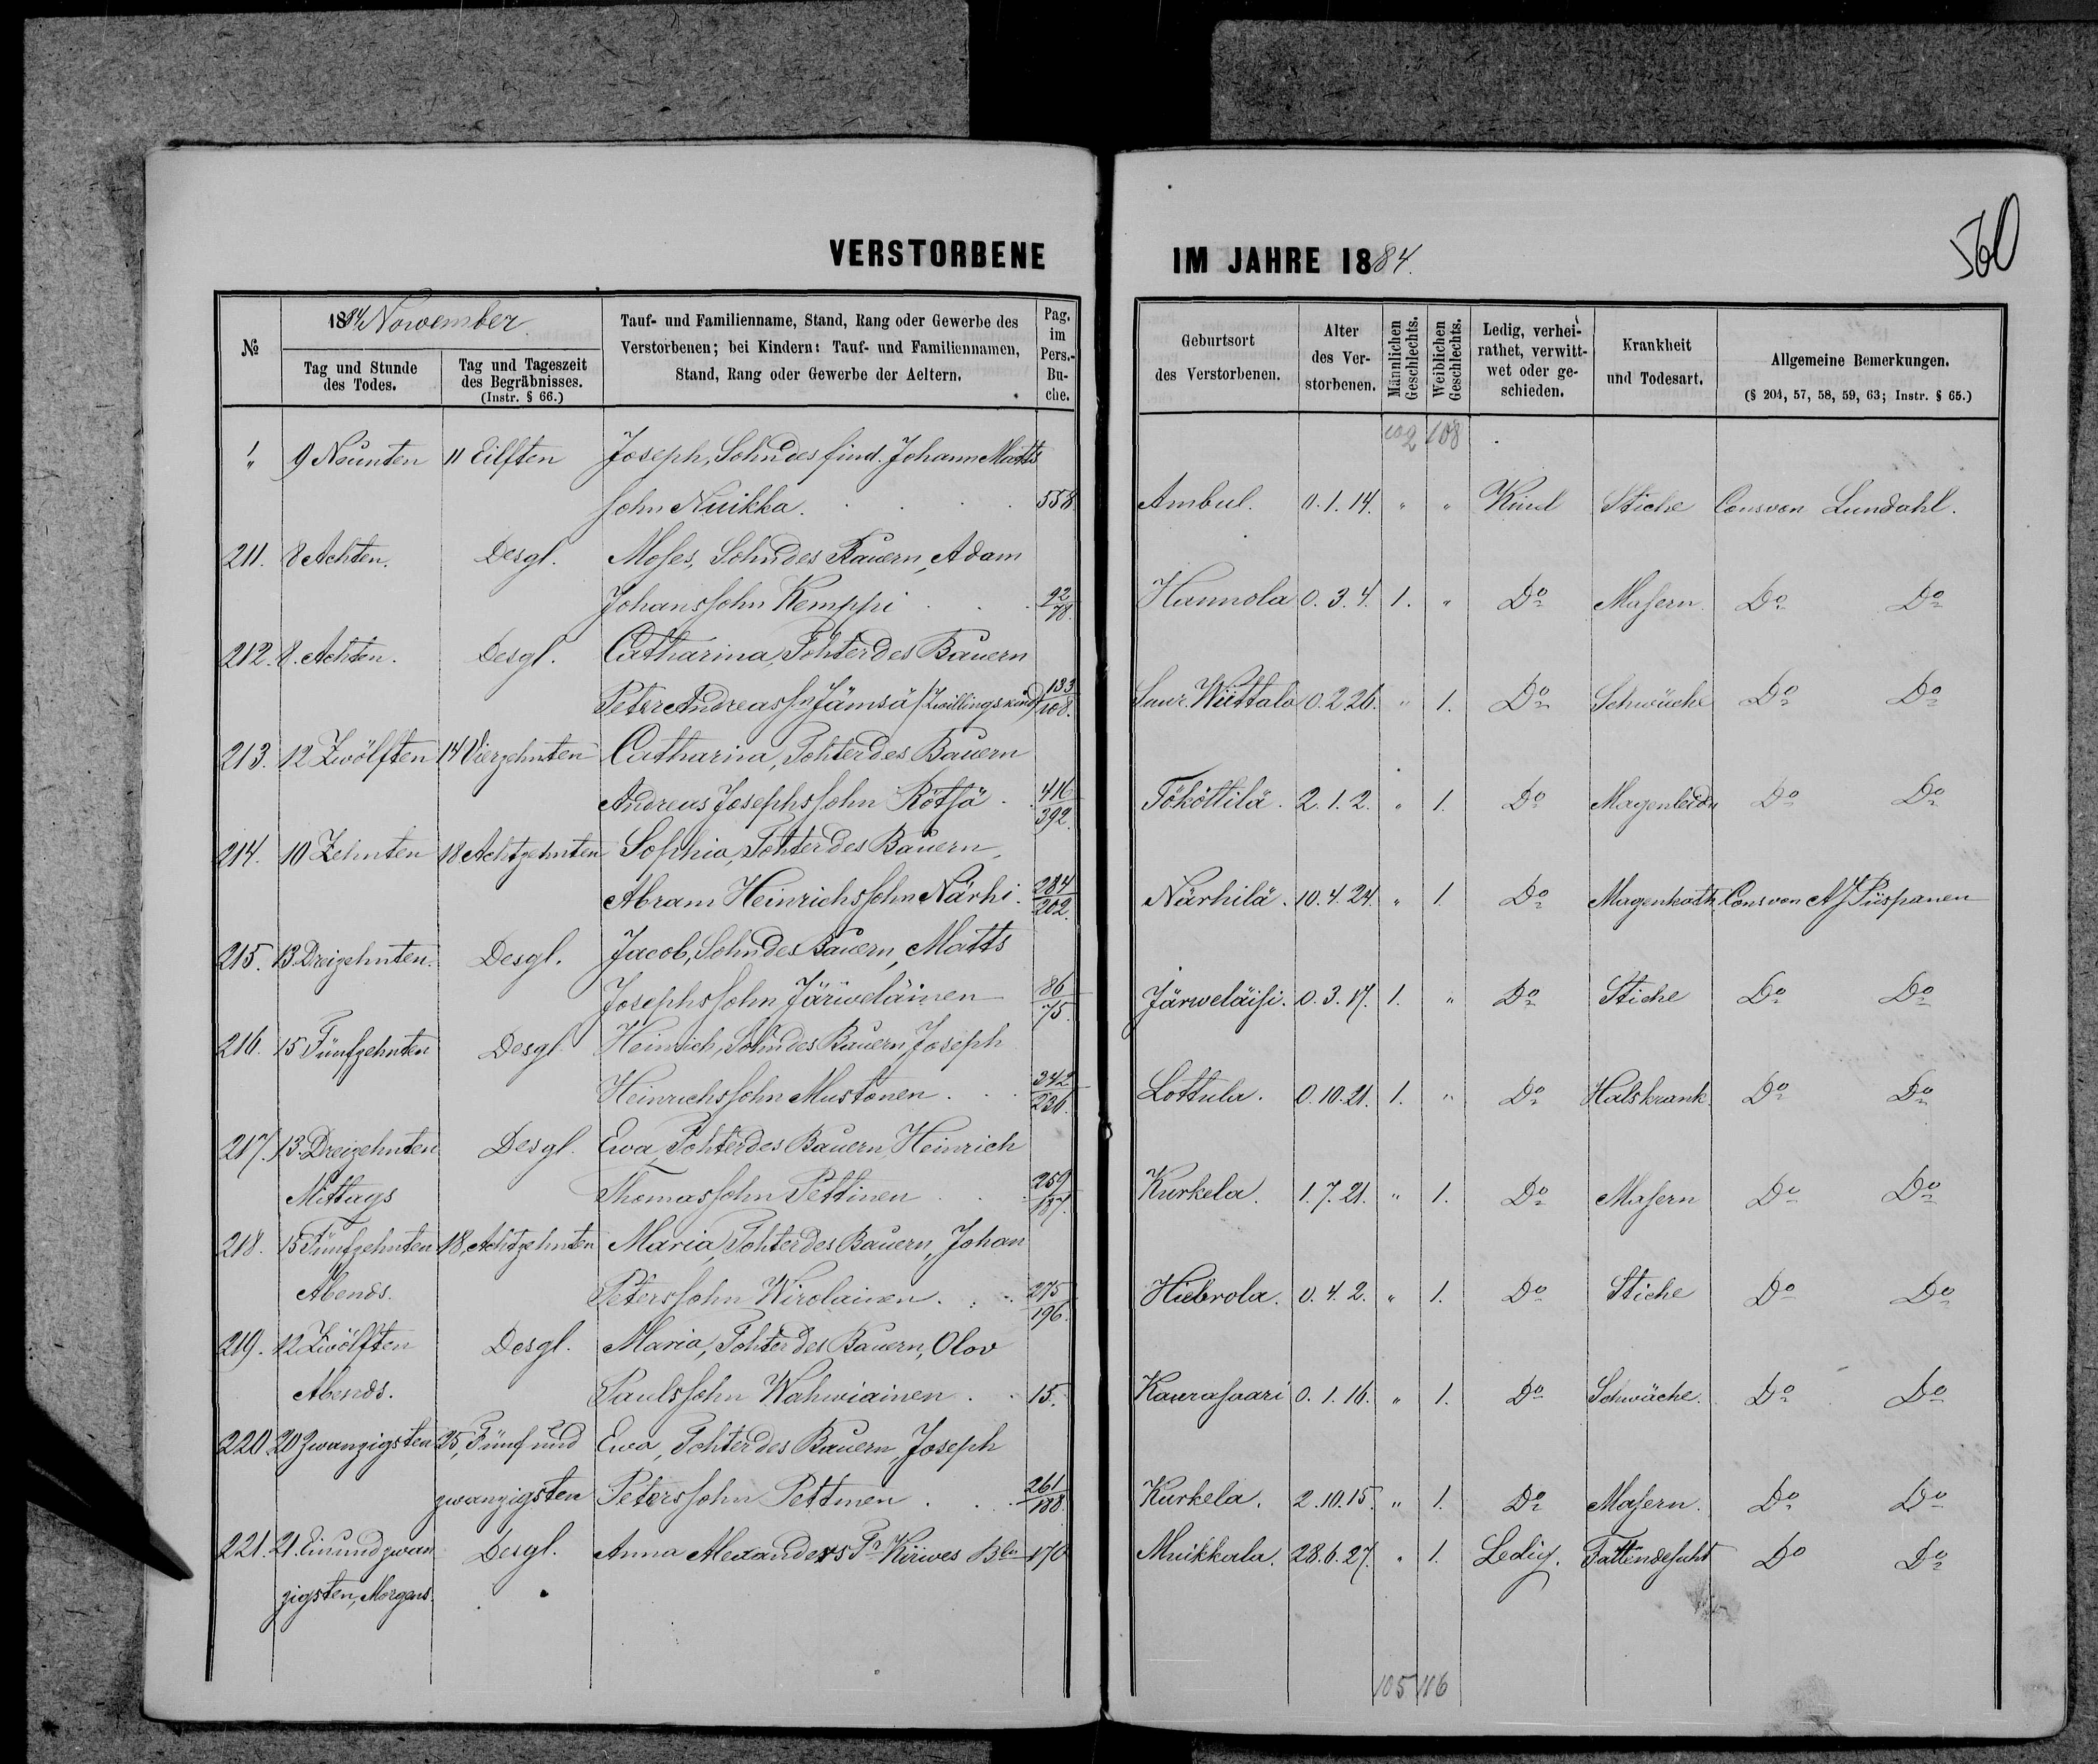 VERSTORBENE
№
1884 November
Tag und Stunde des Todes.
Tag und Tageszeit des Begräbnisses. (Instr. § 66.)
Tauf- und Familienname, Stand, Rang oder Gewerbe des Verstorbenen; bei Kindern: Tauf- und Familiennamen, Stand, Rang oder Gewerbe der Aeltern.
Pag. im Pers.-Buche.
9 Neunten 11 Eilften Joseph, Sohn des find. Johann Matts
sohn Nuikka. 558
211. 8 Achten. Desgl. Moses, Sohn des Bauern, Adam
Johanssohn Kemppi 92/78.
212. 8. Achten. Desgl. Catharina, Tohter des Bauern
Peter Andreass Jämsä (Zwillingskind) 133/108.
213. 12 Zwölften 14 Vierzehnten Catharina, Tohter des Bauern
Andreas Josephssohn Rötsä 416/392.
214. 10 Zehnten 18 Achtzehnten Sophia, Tohter des Bauern,
Abram Heinrichssohn Närhi. 284/202.
215. 13. Dreizehnten. Desgl. Jacob, Sohn des Bauern, Matts
Josephssohn Järweläinen 86/75.
216. 15 Fünfzehnten Desgl. Heinrich, Sohn des Bauern Joseph
Heinrichssohn Mustonen. 342/236.
217. 13. Dreizehnten Desgl. Ewa, Tohter des Bauern, Heinrich
Mittags Thomassohn Pettinen 259/187.
218. 15 Fünfzehnten 18, Achtzehnten Maria, Tohter des Bauern, Johan
Abends. Peterssohn Wirolainen. 275/196.
219. 12 Zwölften Desgl. Maria, Tohter des Bauern, Olov
Abends. Paulssohn Wahwiainen. 15.
220. 20 Zwanzigsten 25, Fünf und Ewa, Tohter des Bauern, Joseph
zwanzigsten Peterssohn Pettinen. 261/188.
221. 21. Einundzwan Desgl. Anna Alexanders Tr Kirwes 170
zigsten, Morgens.
IM JAHRE 1884.
560
Geburtsort des Verstorbenen.
Alter des Verstorbenen.
Männlichen Geschlechts.
Weiblichen Geschlechts.
Ledig, verheirathet, verwittwet oder geschieden.
Krankheit und Todesart.
Allgemeine Bemerkungen. (§ 204, 57, 58, 59, 63; Instr. § 65.)
102 108
Ambul. 0.1.14. " " Kind Stiche Cons von Lundahl.
Hannola 0.3.4. 1. " Do Masern. Do Do
Saur. Wiittala 0.2.26. " 1. Do Schwäche Do Do
Tököttilä. 2.1.2. " 1. Do Do Do
Närhilä. 10.4.24. " 1. Do Cons von A J Piispanen
Järweläisi. 0.3.17. 1. " Do Stiche Do Do
Lottula. 0.10.21. 1. " Do Halskrank. Do Do
Kurkela. 1.7.21. " 1. Do Masern Do Do
Hiebrola. 0.4.2. " 1. Do Stiche Do Do
Kaurasaari 0.1.16. " 1. Do Schwäche. Do Do
Kurkela. 2.10.15. " 1. Do Masern. Do Do
Muikkala. 28.6.27. " 1. Ledig. Do Do
105 116